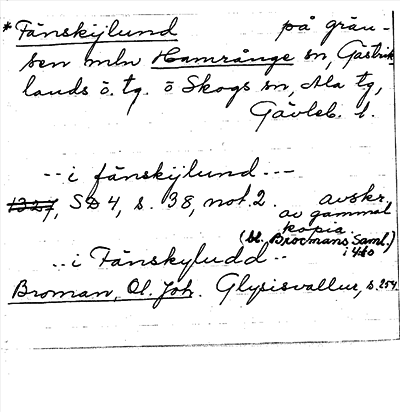 *Fänskijlund på grän-
sen mln Hamrånge sn, Gästrik-
lands ö. tg. ö Skogs sn, Ala tg,
Gävleb. l.
--i fänskijlund.--
1327, SD 4, s. 38, not. 2. avskr.
av gammal
kopia
(bl. Brocmans Saml.)
i 4:to
..i Fänskyludd..
Broman, Ol. Joh. Glysisvallur, s. 254.